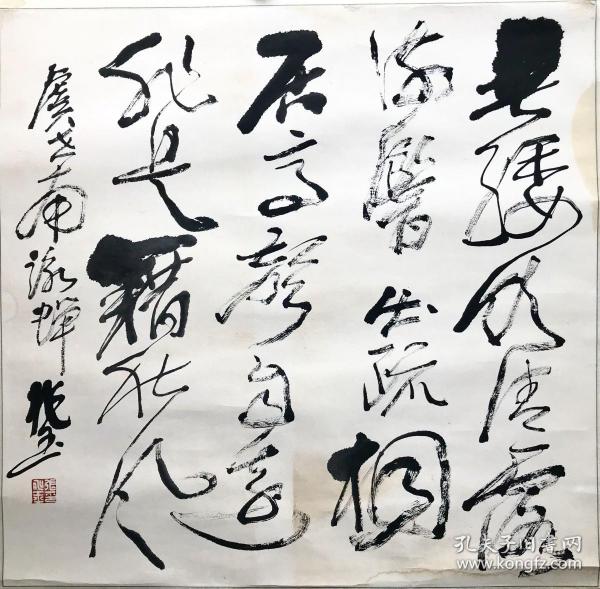 垂緌飲清露
流響出疏桐
居高聲自遠
非是藉秋风
虞世南詠蝉
孔夫子旧书网
www.kongfz.com